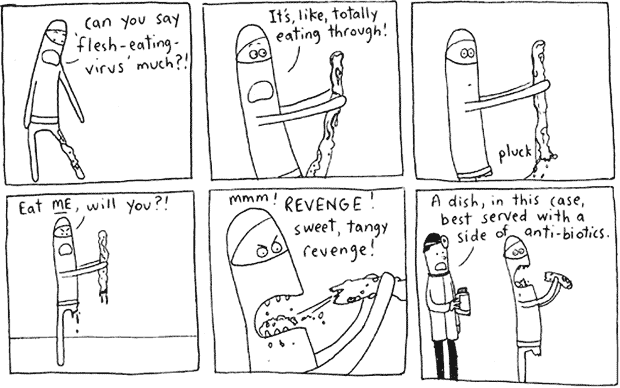 can you say
'flesh-eating-
virus' much?!
It's, like, totally
eating through!
pluck
Eat ME, will you?!
mmm! REVENGE!
sweet, tangy
revenge!
A dish, in this case,
best served with a
side of anti-biotics.